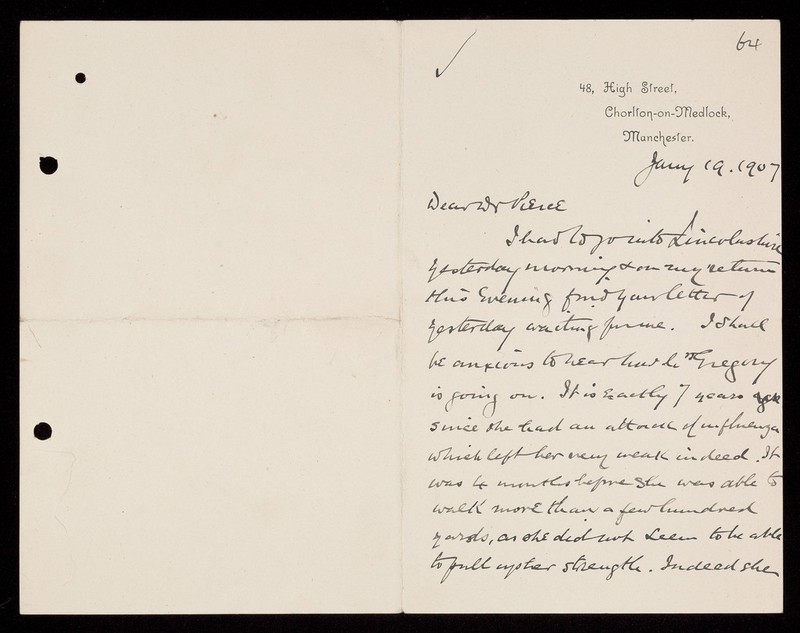 64
48, High Street,
Chorlton-on-Medlock,
Manchester.
Jany 19. 1907
Dear Dr Pierce
I had to go into Lincolnshire
yesterday morning & on my return
this Evening find your letter of
yesterday waiting for me. I shall
be anxious to hear how Mrs Gregory
is going on. It is Exactly 7 years
since she had an attack of influenza
which left her very weak indeed. It
was 4 months before she was able to
walk more than a few hundred
yards, as she did not seem to be able
to pull up her strength. Indeed she